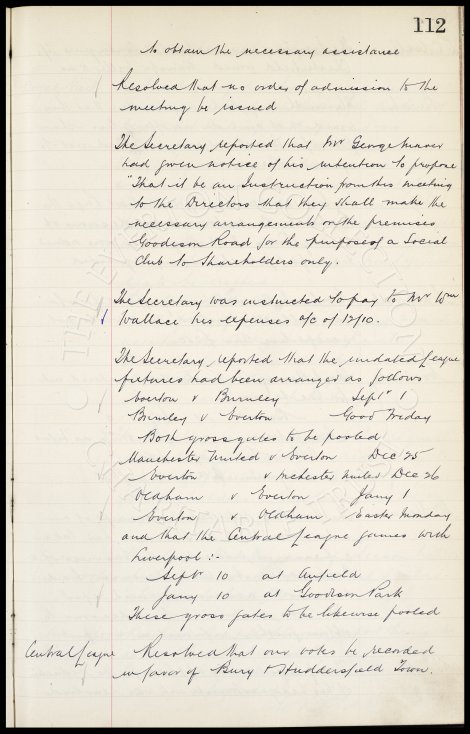 112
to obtain the necessary assistance
Resolved that no orders of admission to the
meeting be issued
The Secretary reported that Mr George
had given notice of his intention to propose
"That it be an Instruction from this meeting
to the Directors that they shall make the
necessary arrangements on the premises
Goodison Road for the purpose of a Social
Club to Shareholders only.
The Secretary was instructed to pay to Mr Wm
Wallace his expenses a/c of 12/10.
The Secretary reported that the undated League
fixtures had been arranged as follows
Everton v Burnley Sept 1
Burnley v Everton Good Friday
Both gross gates to be pooled
Manchester United v Everton Dec 25
Everton v Mchester United Dec 26
Oldham v Everton Jany 1
Everton v Oldham Easter Monday
and that the Central League games with
Liverpool :-
Sept 10 at Anfield
Jany 10 at Goodison Park
These gross gates to be likewise pooled
Central League Resolved that our votes be recorded
in favor of Bury & Huddersfield Town.